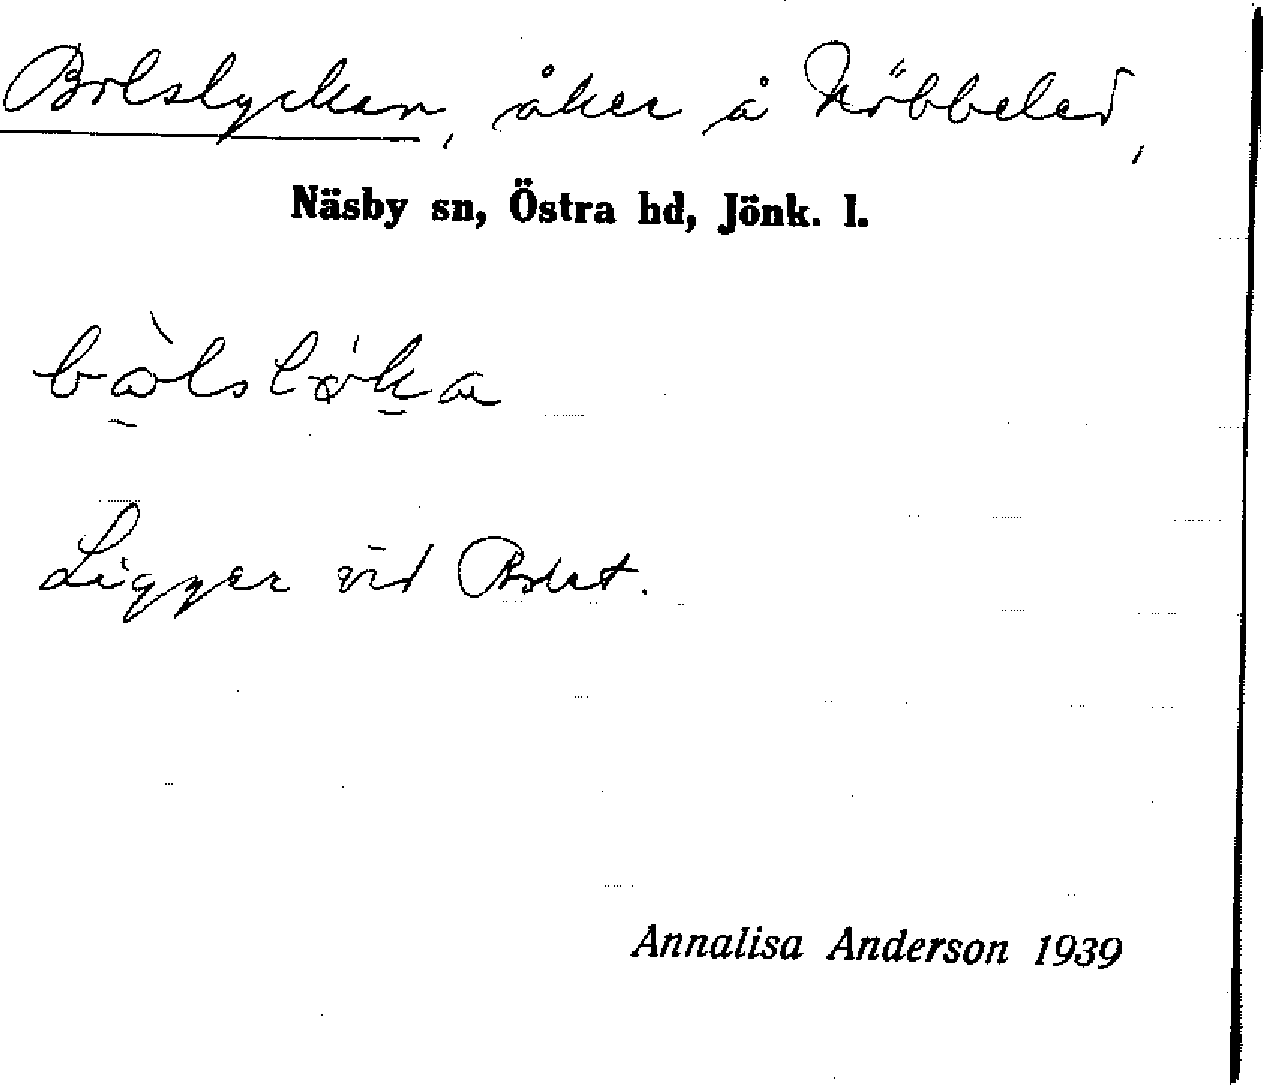 Bolslyckan, åker å Nöbbeled,
Näsby sn, Östra hd, Jönk. l.
Ligger vid Bolet.
Annalisa Anderson 1939